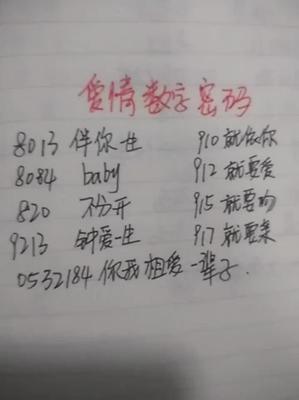 爱情数字密码
8013 伴你一生 910 就依你
8084 baby 912 就要爱
820 不分开 915 就要吻
9213 钟爱一生 917 就要亲
0532184 你我相爱一辈子.